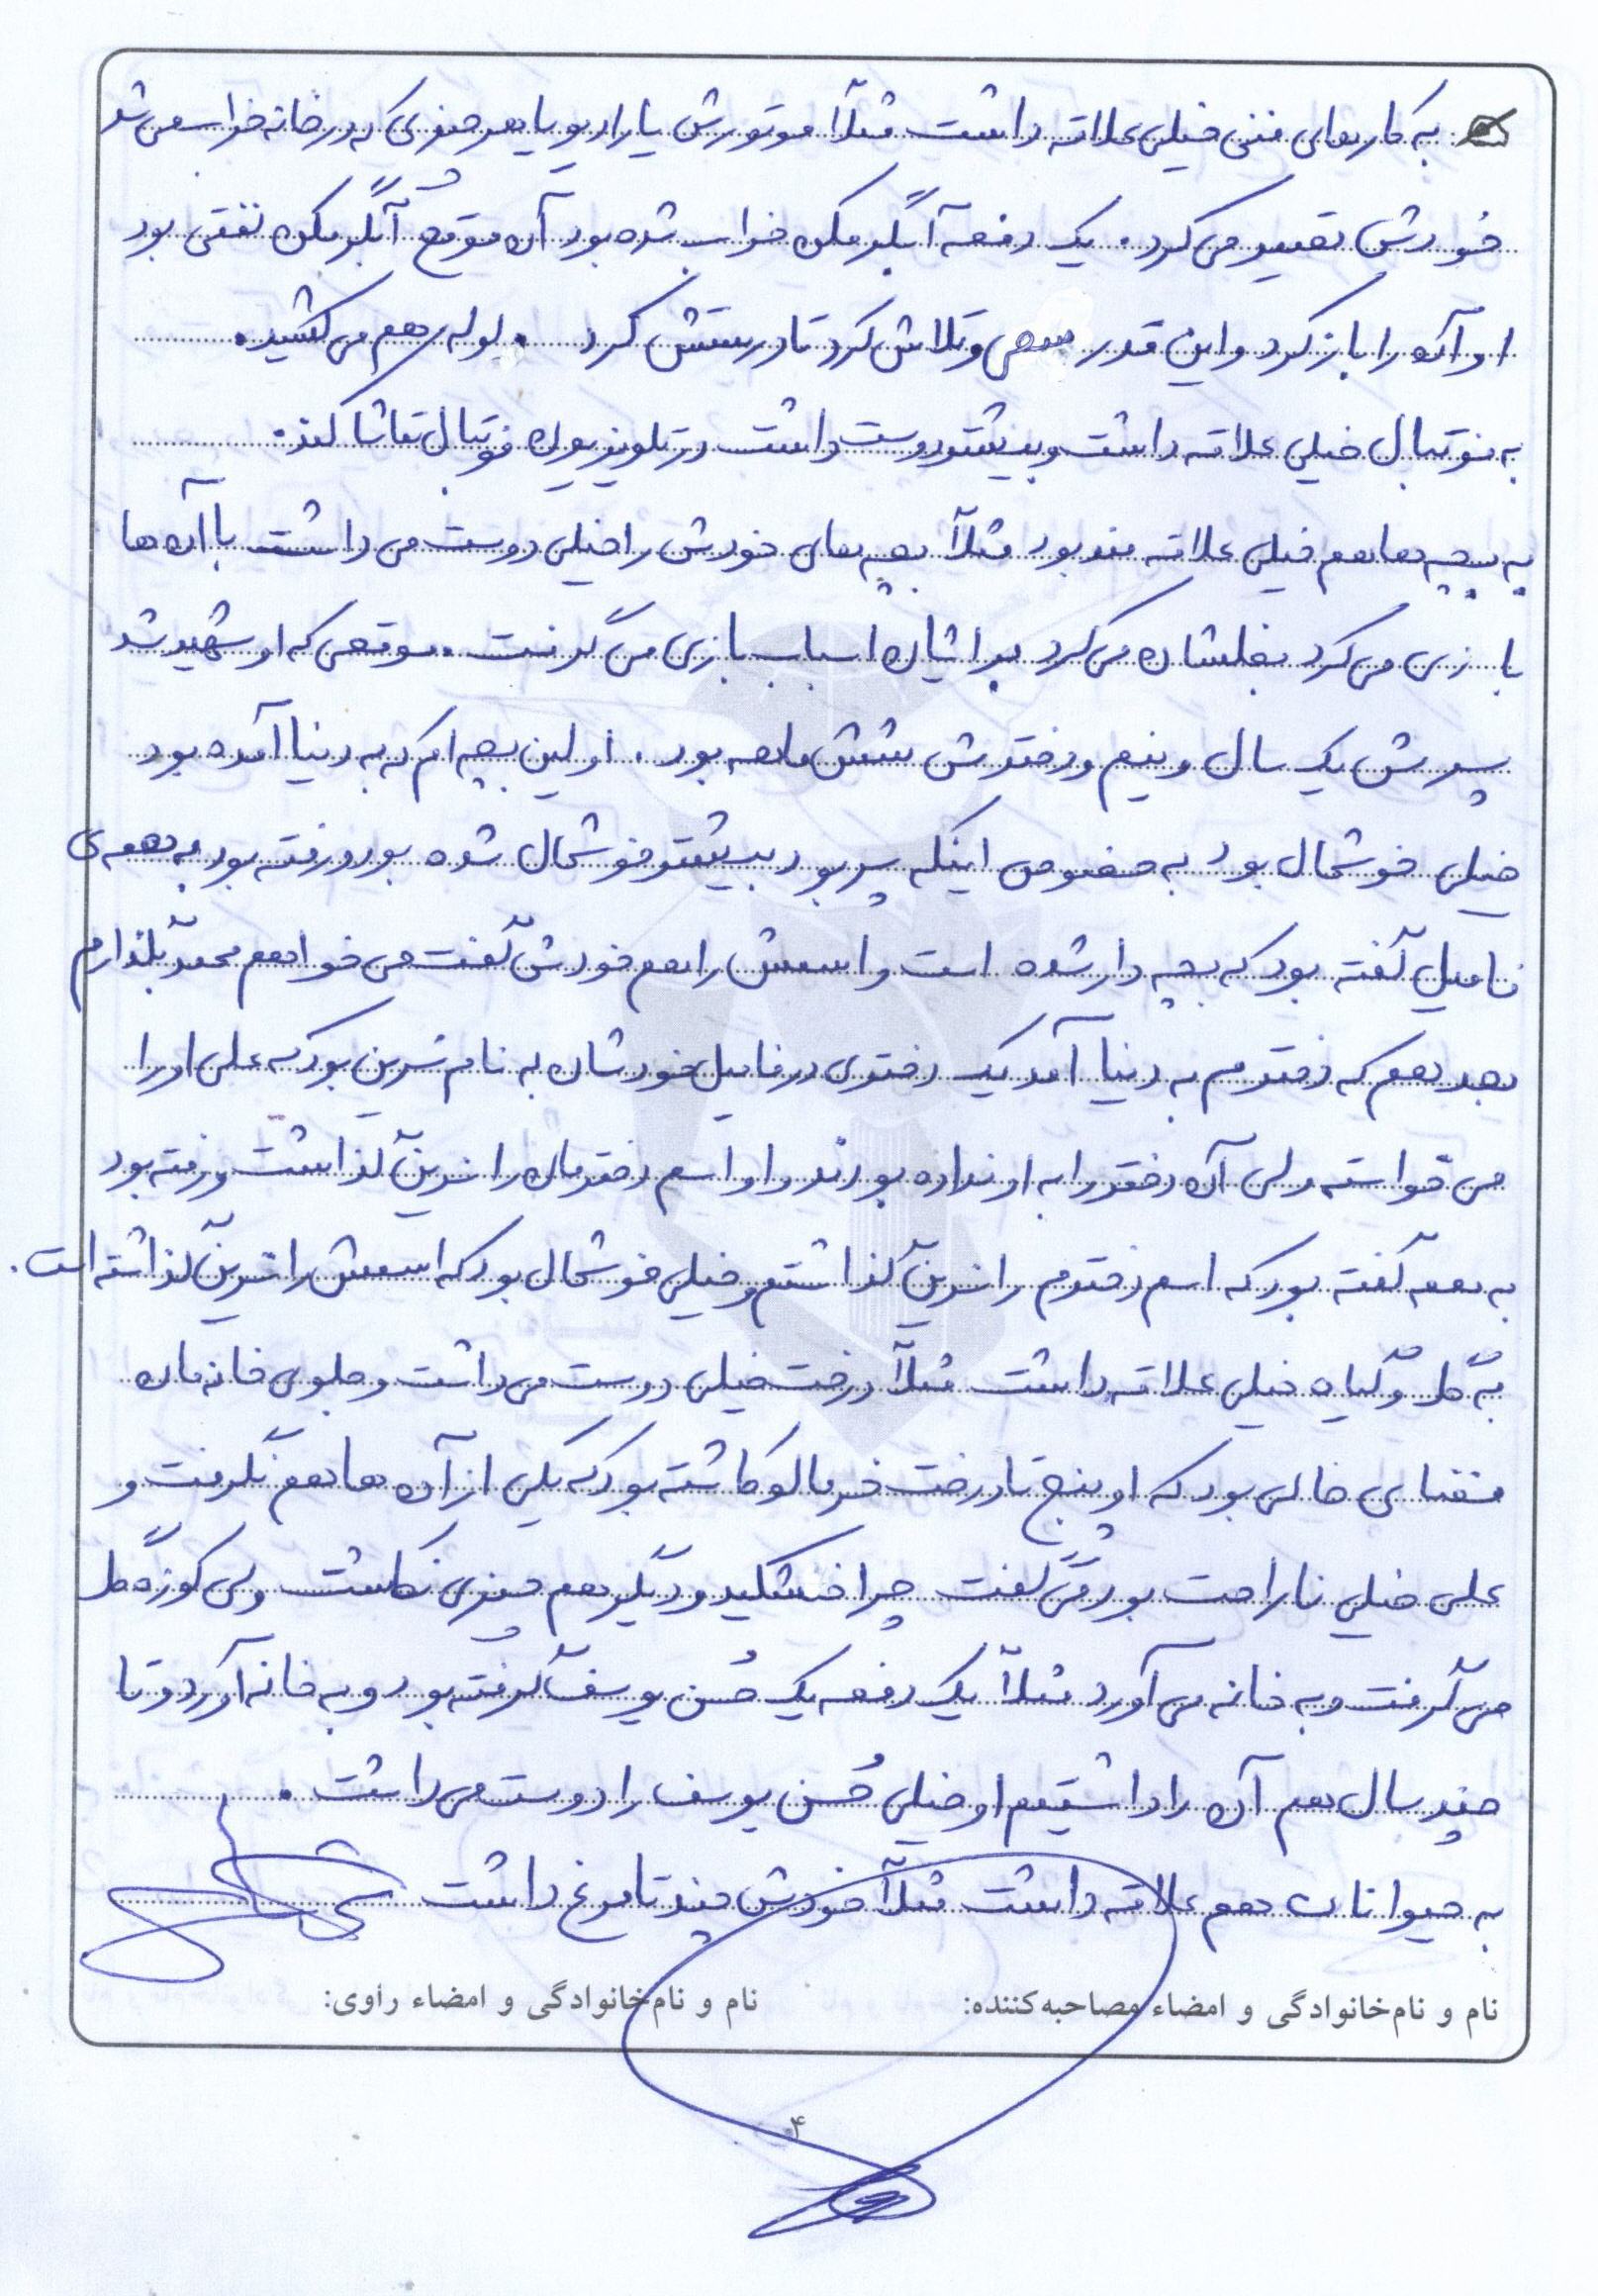 به کارهای فنی خیلی علاقه داشت مثلاً موتورش یا رادیو یا هر چیزی که در خانه خراب می شد
خودش تعمیر می کرد. یک دفعه آبگرمکن خراب شده بود آن موقع آبگرمکن نفتی بود
او آن را باز کرد و این قدر سعی و تلاش کرد تا درستش کرد. لوله هم می کشید.
به فوتبال خیلی علاقه داشت و بیشتر دوست داشت در تلویزیون فوتبال تماشا کند.
به بچه ها هم خیلی علاقه مند بود مثلاً بچه های خودش را خیلی دوست می داشت با آن ها
بازی می کرد بغلشان می کرد برایشان اسباب بازی می گرفت. موقعی که او شهید شد
پسرش یک سال و نیم و دخترش شش ماهه بود. اولین بچه ام که به دنیا آمده بود
خیلی خوشحال بود به خصوص اینکه پسر بود بیشتر خوشحال شده بود و رفته بود به همه ی
فامیل گفته بود که بچه دار شده است و اسمش را هم خودش گفت می خواهم محمد بگذارم
بعد هم که دخترم به دنیا آمد یک دختری در فامیل خودشان به نام نسرین بود که علی او را
می خواسته ولی آن دختر را به او نداده بودند و او اسم دخترمان را نسرین گذاشت و رفته بود
به همه گفته بود که اسم دخترم را نسرین گذاشتم و خیلی خوشحال بود که اسمش را نسرین گذاشته است.
به گل و گیاه خیلی علاقه داشت مثلاً درخت خیلی دوست می داشت و جلوی خانه مان
فضای خالی بود که او پنج تا درخت خرمالو کاشته بود که یکی از آن ها هم نگرفت و
علی خیلی ناراحت بود می گفت چرا خشکید و دیگر هم چیزی نکاشت ولی کوزه گل
می گرفت و به خانه می آورد مثلاً یک دفعه یک حُسن یوسف گرفته بود و به خانه آورد و تا
چند سال هم آن را داشتیم او خیلی حُسن یوسف را دوست می داشت.
به حیوانات هم علاقه داشت مثلاً خودش چند تا مرغ داشت
نام و نام‌خانوادگی و امضاء مصاحبه‌کننده: نام و نام‌خانوادگی و امضاء راوی:
۴